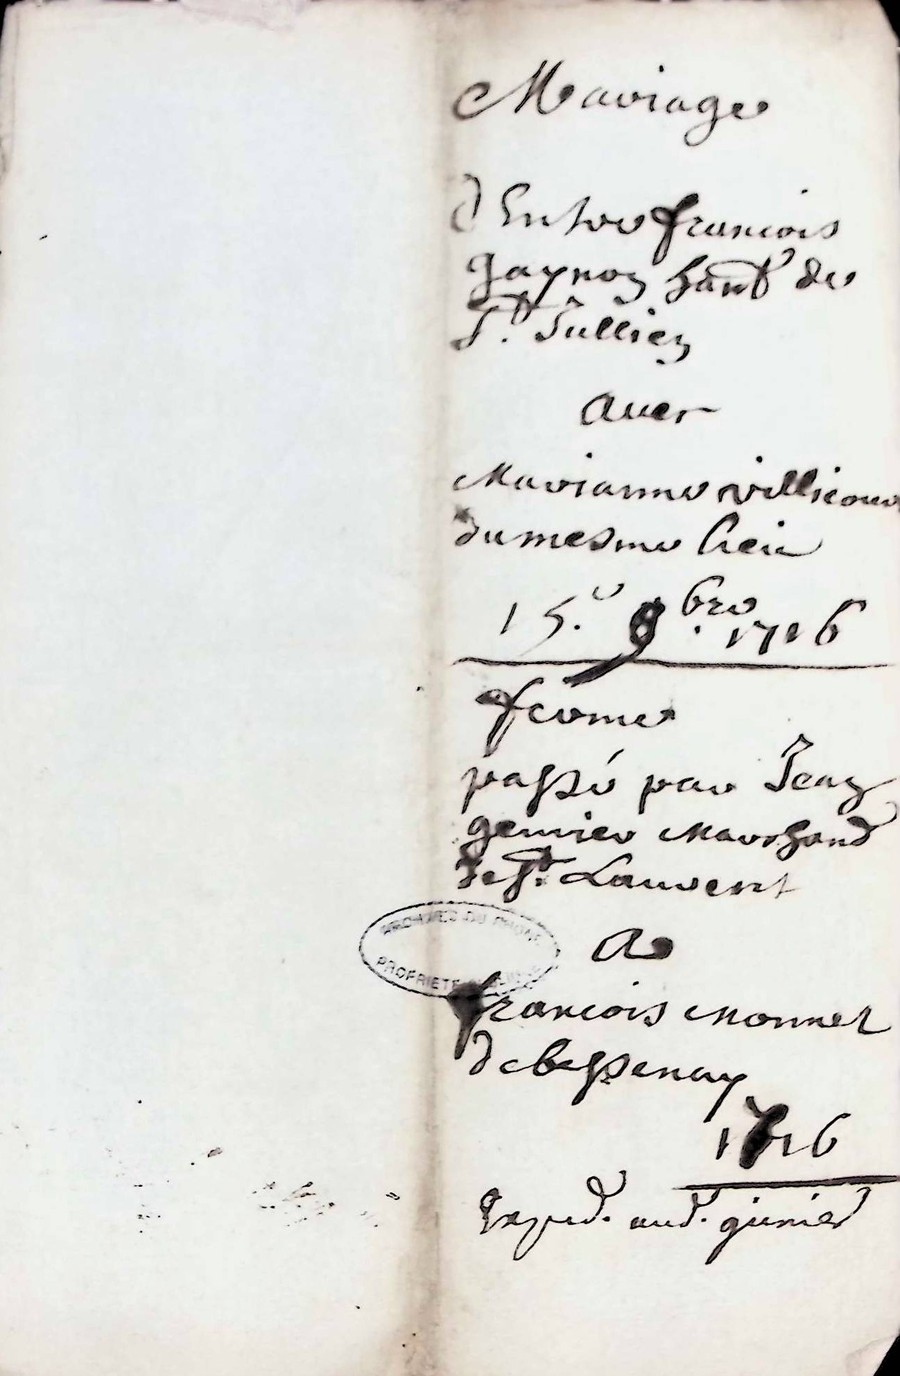 Mariage
d'Entre francois
gaynon habt de
St. Jullien
avec
Marianne villiem
du mesme lieu
15.e 9.bre 1716
ferme
passé par Jean
genier Marchand
de St. Laurent
A
francois monnet
de bessenay
1716
Exped. aud. genier
ARCHIVES DU RHONE
PROPRIETE PUBLIQUE